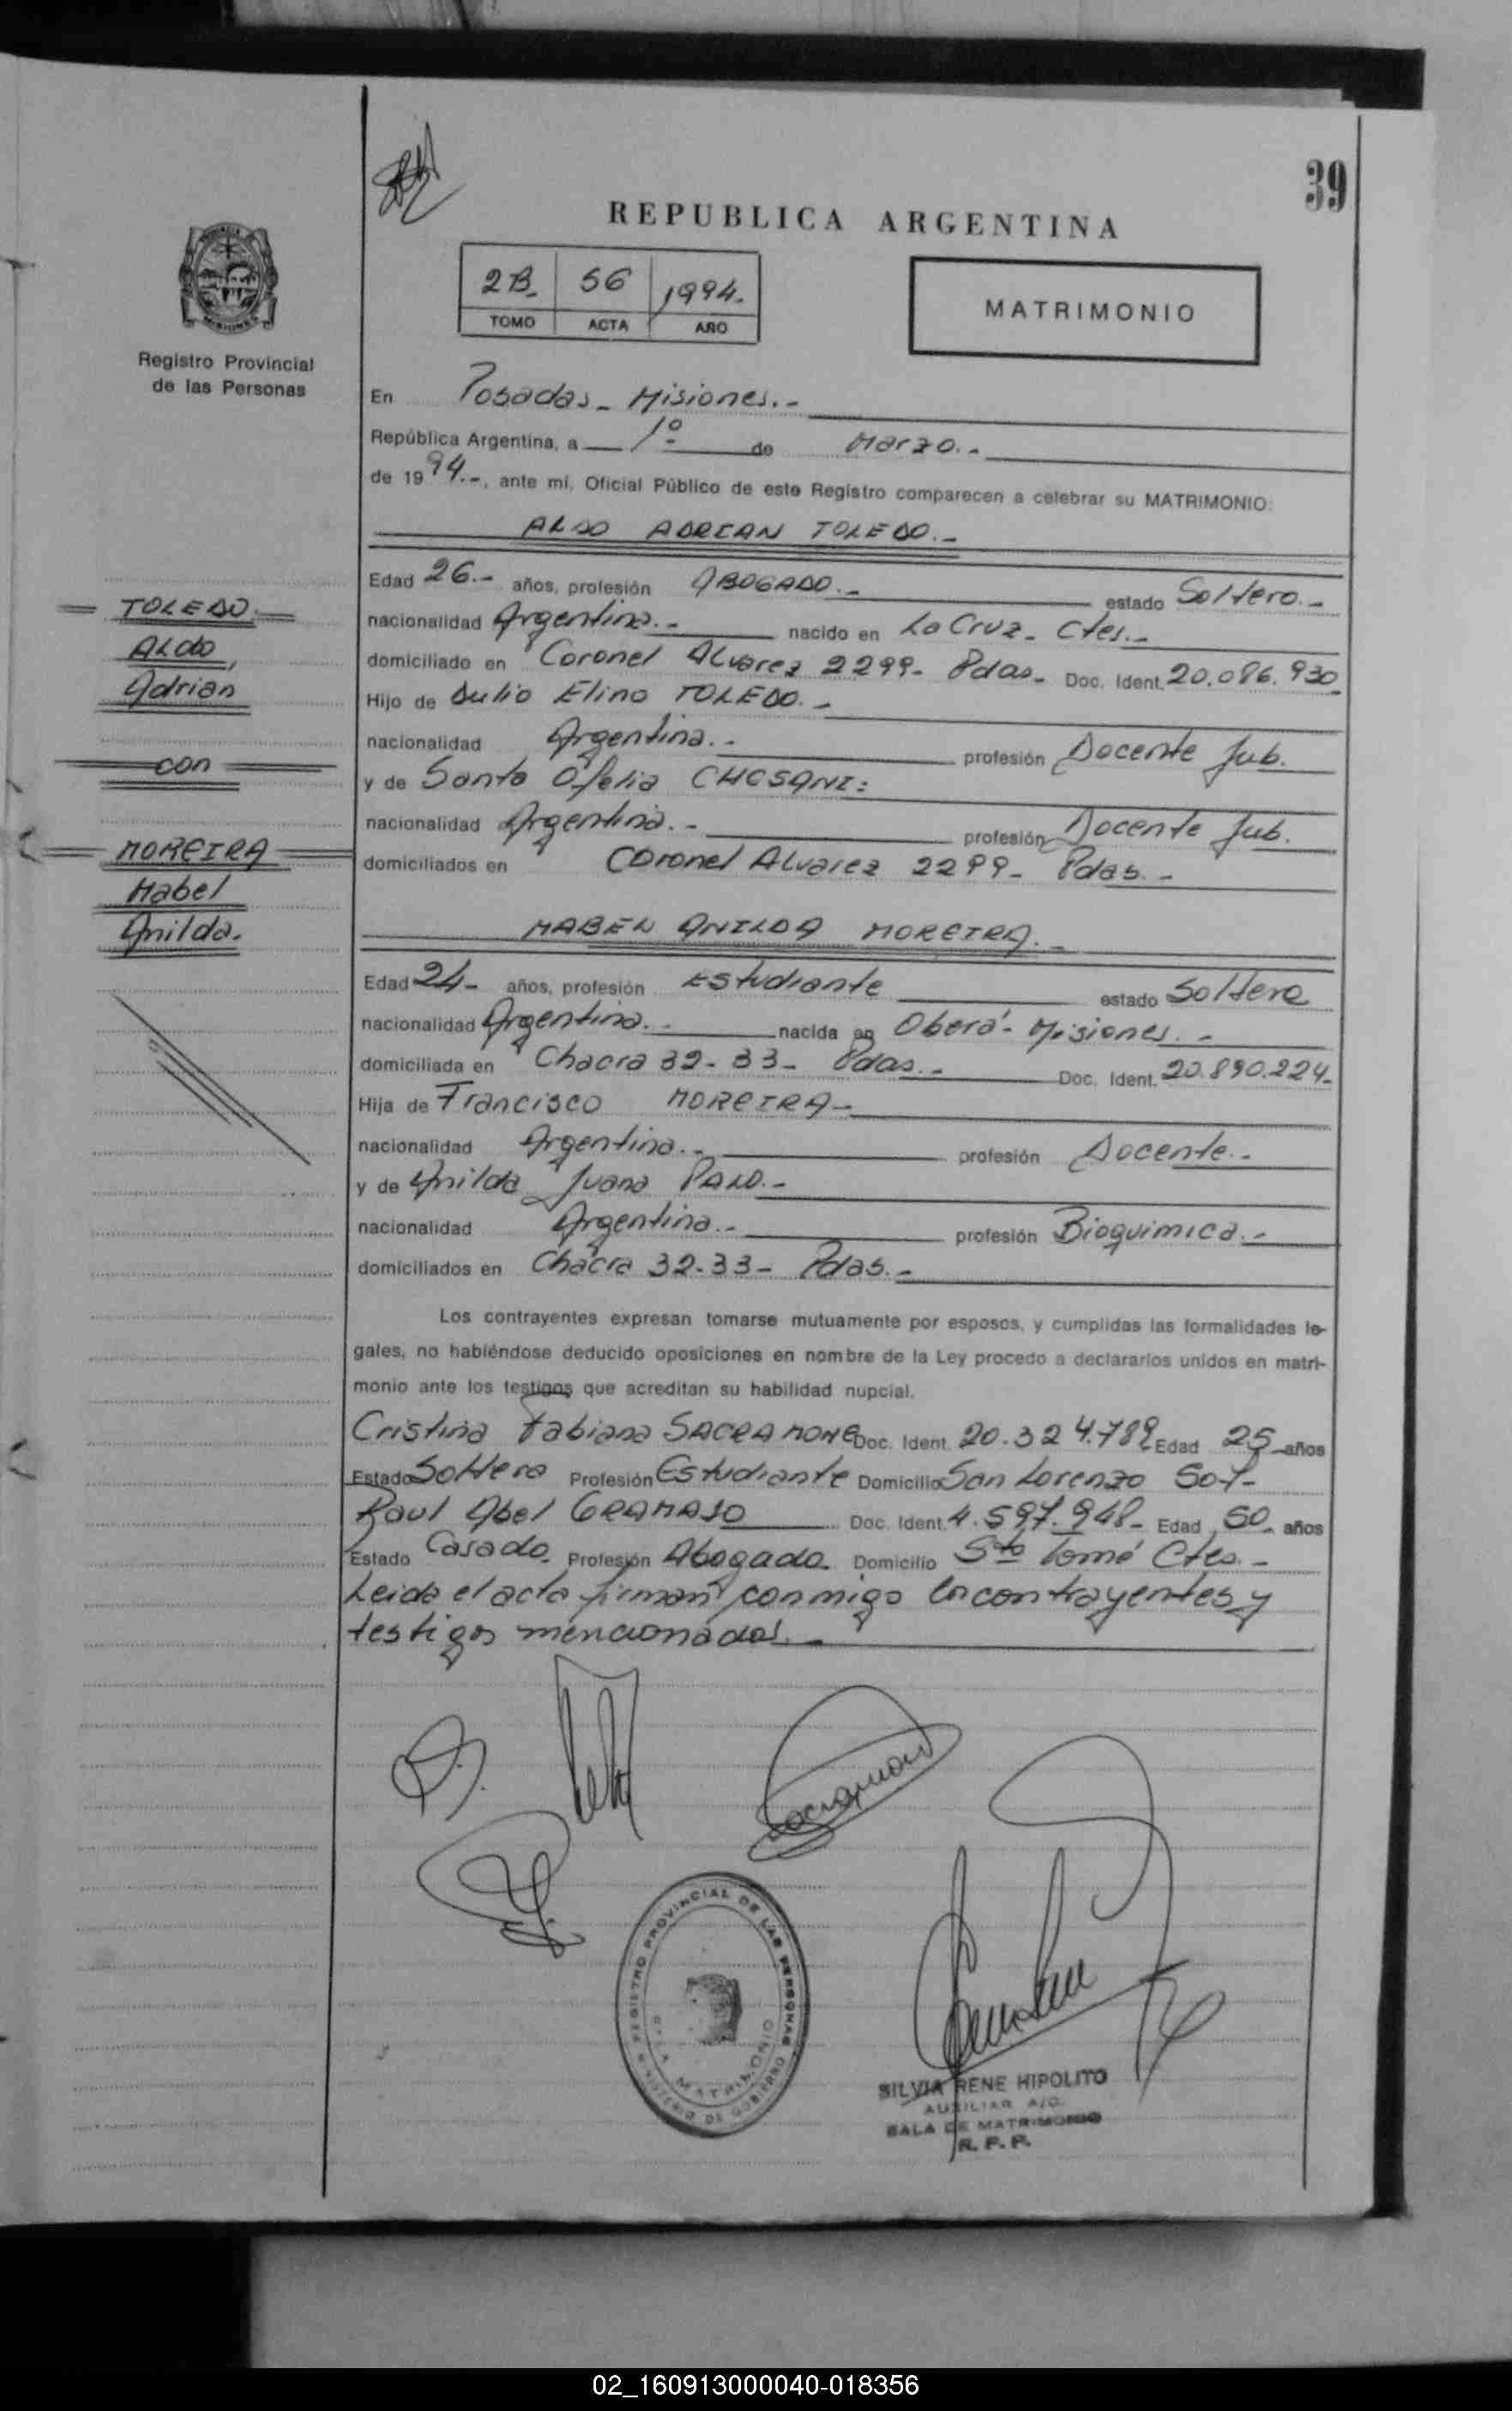 39
REPUBLICA ARGENTINA
2B.- 56 1994.-
TOMO ACTA AÑO
MATRIMONIO
Registro Provincial
de las Personas
En Posadas - Misiones.-
República Argentina, a 1º de Marzo.-
de 1994.-, ante mí, Oficial Público de este Registro comparecen a celebrar su MATRIMONIO:
ALDO ADRIAN TOLEDO.-
Edad 26.- años, profesión ABOGADO.- estado Soltero.-
nacionalidad Argentina.- nacido en La Cruz - Ctes.-
domiciliado en Coronel Alvarez 2299- Pdas- Doc. Ident. 20.086.930
Hijo de Julio Elino TOLEDO.-
nacionalidad Argentina.- profesión Docente Jub.
y de Santa Ofelia
nacionalidad Argentina.- profesión Docente Jub.
domiciliados en Coronel Alvarez 2299- Pdas.-
TOLEDO.
Aldo
Adrian
con
MOREIRA
Mabel
Anilda.
MABEL ANILDA MOREIRA.-
Edad 24- años, profesión Estudiante estado Soltera
nacionalidad Argentina.- nacida en Oberá - Misiones.-
domiciliada en Chacra 32-33- Pdas.- Doc. Ident. 20.890.224-
Hija de Francisco MOREIRA-
nacionalidad Argentina.- profesión Docente.-
y de Anilda Juana
nacionalidad Argentina.- profesión Bioquimica.-
domiciliados en Chacra 32-33- Pdas.-
Los contrayentes expresan tomarse mutuamente por esposos, y cumplidas las formalidades le-
gales, no habiéndose deducido oposiciones en nombre de la Ley procedo a declararlos unidos en matri-
monio ante los testigos que acreditan su habilidad nupcial.
Cristina Fabiana SACRAMONE Doc. Ident. 20.324.789 Edad 25 años
Estado Soltera Profesión Estudiante Domicilio San Lorenzo
Raul Abel GRAMAJO Doc. Ident. 4.597.948- Edad 50- años
Estado Casado- Profesión Abogado- Domicilio Sto Tomé Ctes.-
Leida el acta firman conmigo los contrayentes y
testigos mencionados.-
REGISTRO PROVINCIAL DE LAS PERSONAS
MINISTERIO DE GOBIERNO
SALA MATRIMONIO
SILVIA RENE HIPOLITO
AUXILIAR A/C.
SALA DE MATRIMONIO
R. P. P.
02_160913000040-018356